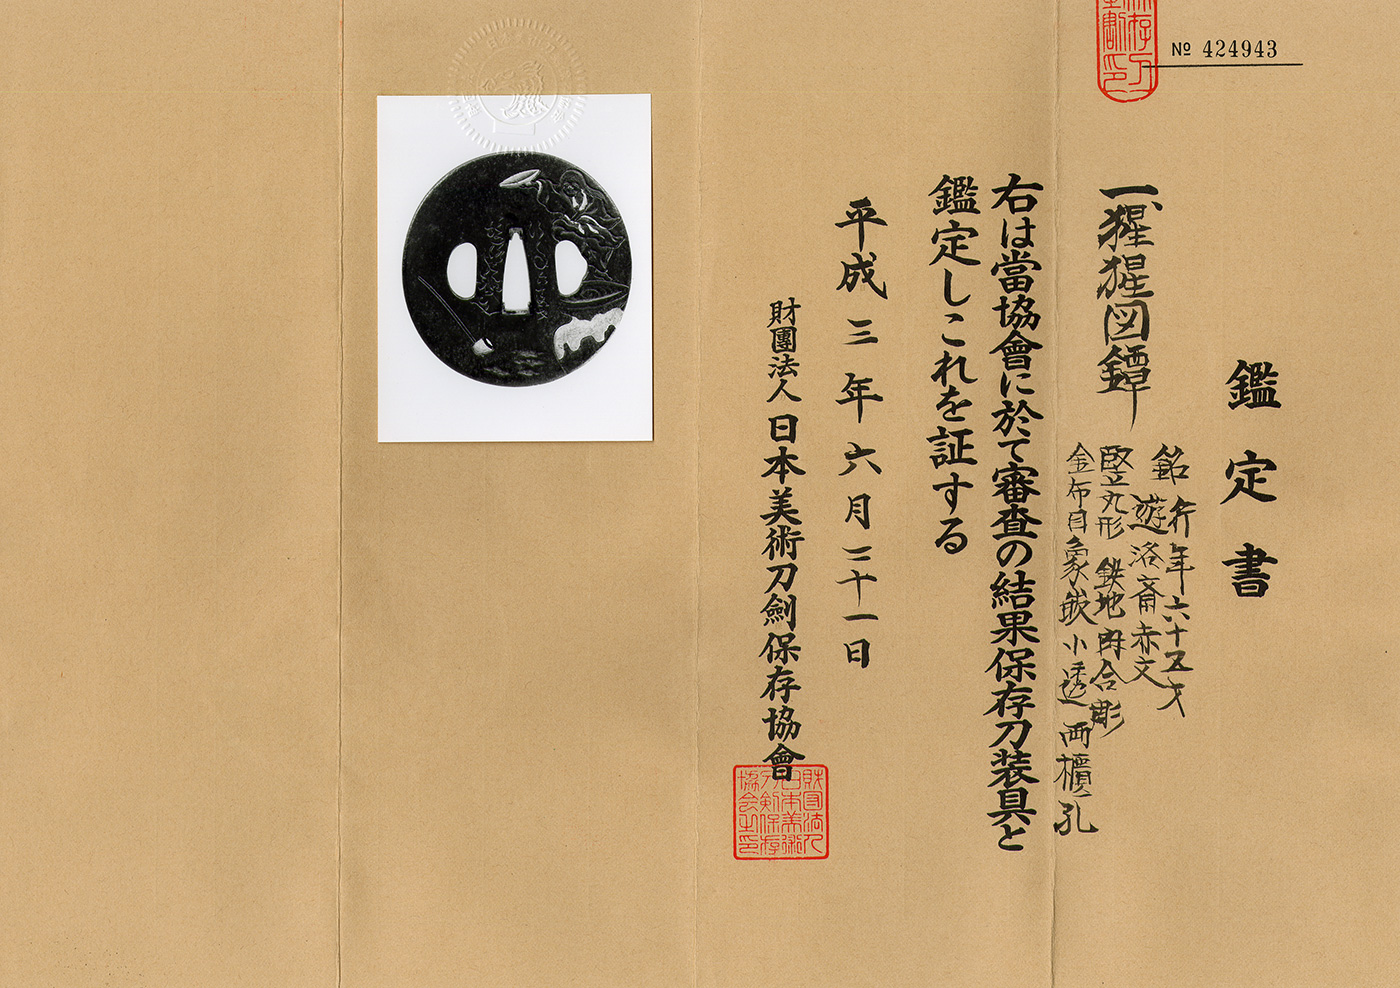 № 424943
鑑定書
一、猩猩図鐔
銘 行年六十五才
遊洛斎赤文
竪丸形 鉄地 肉合彫
金布目象嵌 小透 両櫃孔
右は當協會に於て審査の結果保存刀装具と
鑑定しこれを証する
平成三年六月二十一日
財團法人 日本美術刀劍保存協會
財団法人
日本美術
刀剣保存
協会之印